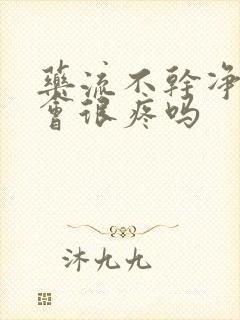 藥流不幹净
會很疼吗
沐九九